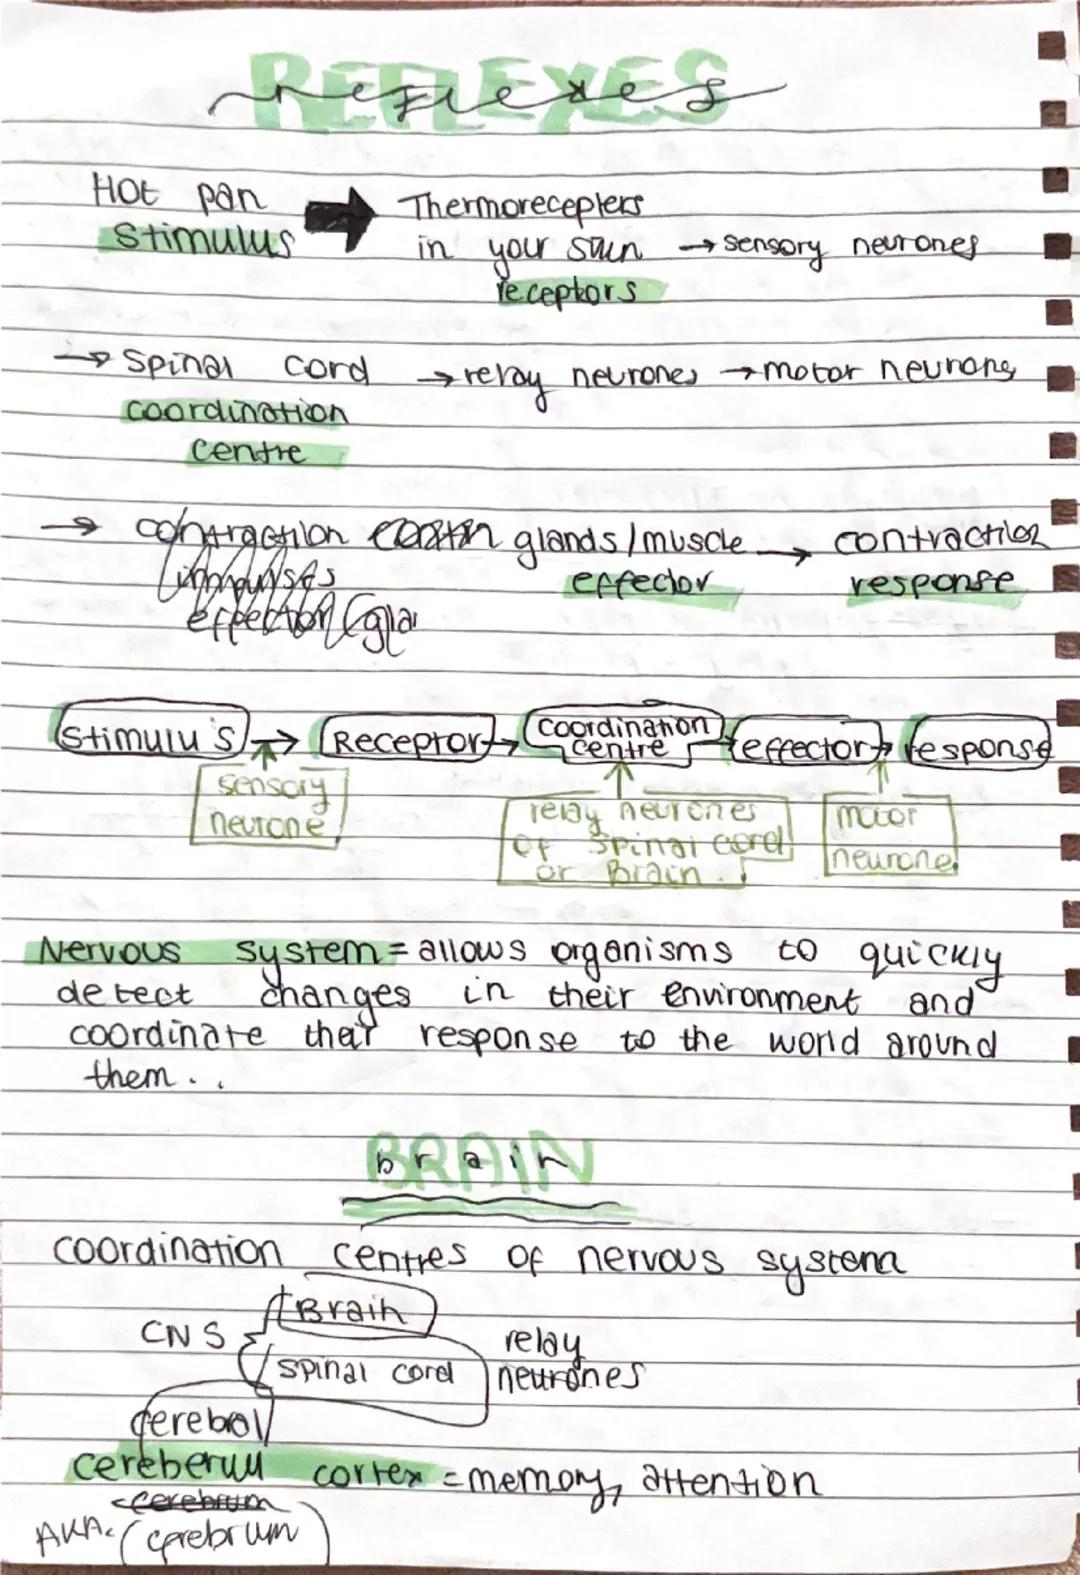 REFLEXES
reflexes
Hot pan
stimulus
Thermorecepters
in your skin → sensory neurones
receptors
→ spinal cord → relay neurones → motor neurons
coordination
centre
→ contraction glands/muscle → contraction
impulses effector response
effector (glar
stimulu's → Receptor → coordination centre → effector → response
sensory
neurone
relay neurones
of spinal cord
or Brain.
motor
neurone.
Nervous system = allows organisms to quickly
detect changes in their environment and
coordinate their response to the world around
them..
BRAIN
brain
coordination centres of nervous system
CNS { Brain
spinal cord
relay
neurones
cerebral
cereberum cortex = memory, attention
cerebrum
AKA. (cerebrum)